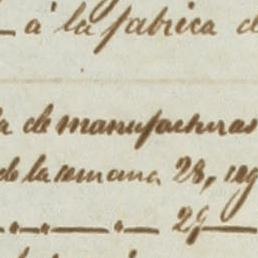 á la fabrica d
a de manufacturas
de la semana 28, seg
" " " 29